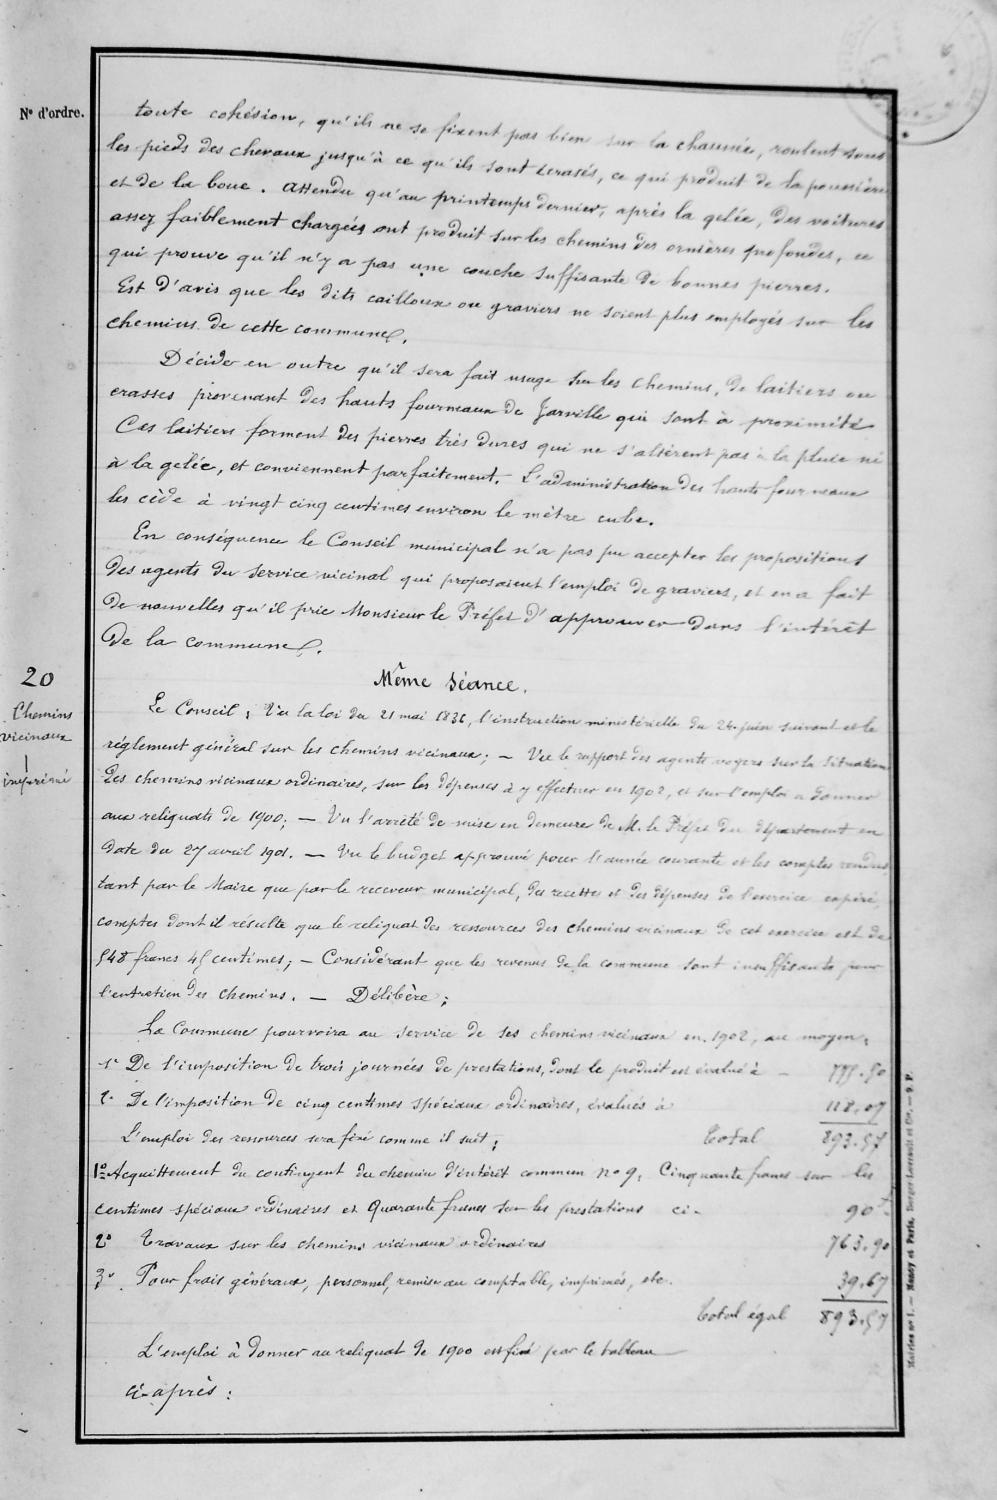 N° d'ordre.
toute cohésion, qu'ils ne se fixent pas bien sur la chaussée, roulent sous
les pieds des chevaux jusqu'à ce qu'ils sont écrasés, ce qui produit de la poussière
et de la boue. Attendu qu'au printemps dernier, après la gelée, des voitures
assez faiblement chargées ont produit sur les chemins des ornières profondes, ce
qui prouve qu'il n'y a pas une couche suffisante de bonnes pierres.
Est d'avis que les dits cailloux ou graviers ne soient plus employés sur les
chemins de cette commune.
Décide en outre qu'il sera fait usage sur les chemins, de laitiers ou
crasses provenant des hauts fourneaux de Jarville qui sont à proximité
Ces laitiers forment des pierres très dures qui ne s'altèrent pas à la pluie ni
à la gelée, et conviennent parfaitement. L'administration des hauts fourneaux
les cède à vingt cinq centimes environ le mètre cube.
En conséquence le Conseil municipal n'a pas pu accepter les propositions
des agents du service vicinal qui proposaient l'emploi de graviers, et en a fait
de nouvelles qu'il prie Monsieur le Préfet d'approuver dans l'intérêt
de la commune.
20
Chemins
vicinaux
imprimé
Même séance.
Le Conseil; Vu la loi du 21 mai 1836, l'instruction ministérielle du 24 juin suivant et le
réglement général sur les chemins vicinaux; — Vu le rapport des agents voyers sur la situation
des chemins vicinaux ordinaires, sur les dépenses à y effectuer en 1902, et sur l'emploi a donner
aux reliquats de 1900; — Vu l'arrêté de mise en demeure de M. le Préfet du département en
date du 27 avril 1901. — Vu le budget approuvé pour l'année courante et les comptes rendus
tant par le Maire que par le receveur municipal, des recettes et des dépenses de l'exercice expiré,
comptes dont il résulte que le reliquat des ressources des chemins vicinaux de cet exercice est de
548 francs 45 centimes; — Considérant que les revenus de la commune sont insuffisants pour
l'entretien des chemins. — Délibère;
La Commune pourvoira au service de ses chemins vicinaux en 1902, au moyen:
1° De l'imposition de trois journées de prestations, dont le produit est évalué à – 775.50
2° De l'imposition de cinq centimes spéciaux ordinaires, évalués à 118.07
L'emploi des ressources sera fixé comme il suit; Total 893.57
1° Acquittement du contingent du chemin d'intérêt commun n° 9, Cinquante francs sur les
centimes spéciaux ordinaires et Quarante francs sur les prestations ci- 90f -
2° Travaux sur les chemins vicinaux ordinaires 763.90
3° Pour frais généraux, personnel, remise au comptable, imprimés, etc. 39.67
Total égal 893.57
L'emploi à donner au reliquat de 1900 est fixé par le tableau
ci-après:
Mairies n° 1. — Nancy et Paris, Berger-Levrault et Cie. — 9. P.